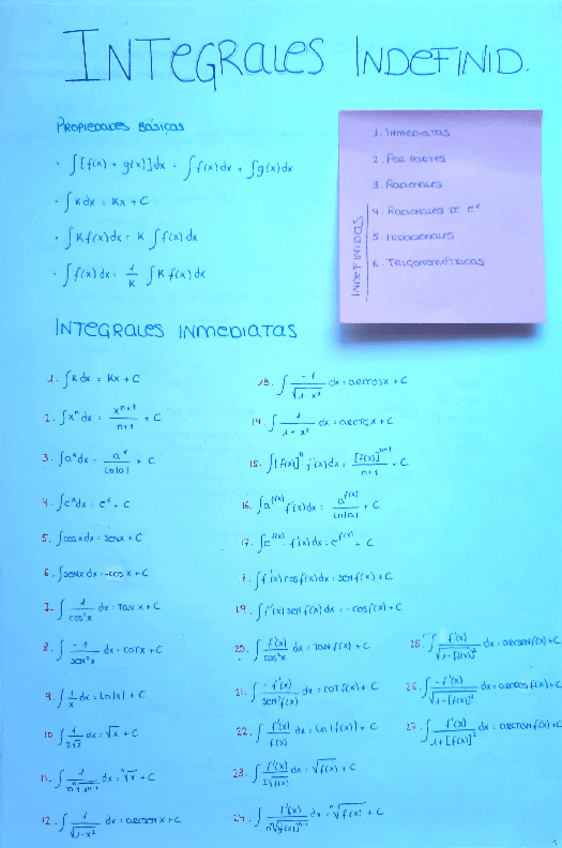 INTEGRALES INDEFINID.
PROPIEDADES BÁSICAS
· ∫[f(x) + g(x)]dx = ∫f(x)dx + ∫g(x)dx
· ∫Kdx = Kx + C
· ∫Kf(x)dx = K ∫f(x)dx
· ∫f(x)dx = 1/K ∫Kf(x)dx
INDEFINIDAS
1. INMEDIATAS
2. POR PARTES
3. RACIONALES
4. RACIONALES DE e^x
5. IRRACIONALES
6. TRIGONOMÉTRICAS
INTEGRALES INMEDIATAS
1. ∫Kdx = Kx + C
2. ∫x^n dx = x^(n+1)/(n+1) + C
3. ∫a^x dx = a^x/ln|a| + C
4. ∫e^x dx = e^x + C
5. ∫cosxdx = senx + C
6. ∫senxdx = -cosx + C
7. ∫1/cos²x dx = TANx + C
8. ∫-1/sen²x dx = cotx + C
9. ∫1/x dx = Ln|x| + C
10. ∫1/(2√x) dx = √x + C
11. ∫1/(n ⁿ√x^(n-1)) dx = ⁿ√x + C
12. ∫1/√(1-x²) dx = arcsenx + C
13. ∫-1/√(1-x²) dx = arccosx + C
14. ∫1/(1+x²) dx = arctgx + C
15. ∫[f(x)]^n f'(x)dx = [f(x)]^(n+1)/(n+1) + C
16. ∫a^f(x) f'(x)dx = a^f(x)/Ln|a| + C
17. ∫e^f(x) · f'(x)dx = e^f(x) + C
∫f'(x)cosf(x)dx = senf(x) + C
19. ∫f'(x)senf(x)dx = -cosf(x) + C
20. ∫f'(x)/cos²x dx = TANf(x) + C
21. ∫-f'(x)/sen²f(x) dx = COTf(x) + C
22. ∫f'(x)/f(x) dx = Ln|f(x)| + C
23. ∫f'(x)/(2√f(x)) dx = √f(x) + C
24. ∫f'(x)/(n ⁿ√f(x)^(n-1)) dx = ⁿ√f(x) + C
25. ∫f'(x)/√(1-[f(x)]²) dx = arcsenf(x) + C
26. ∫-f'(x)/√(1-[f(x)]²) dx = arccosf(x) + C
27. ∫f'(x)/(1+[f(x)]²) dx = arctanf(x) + C